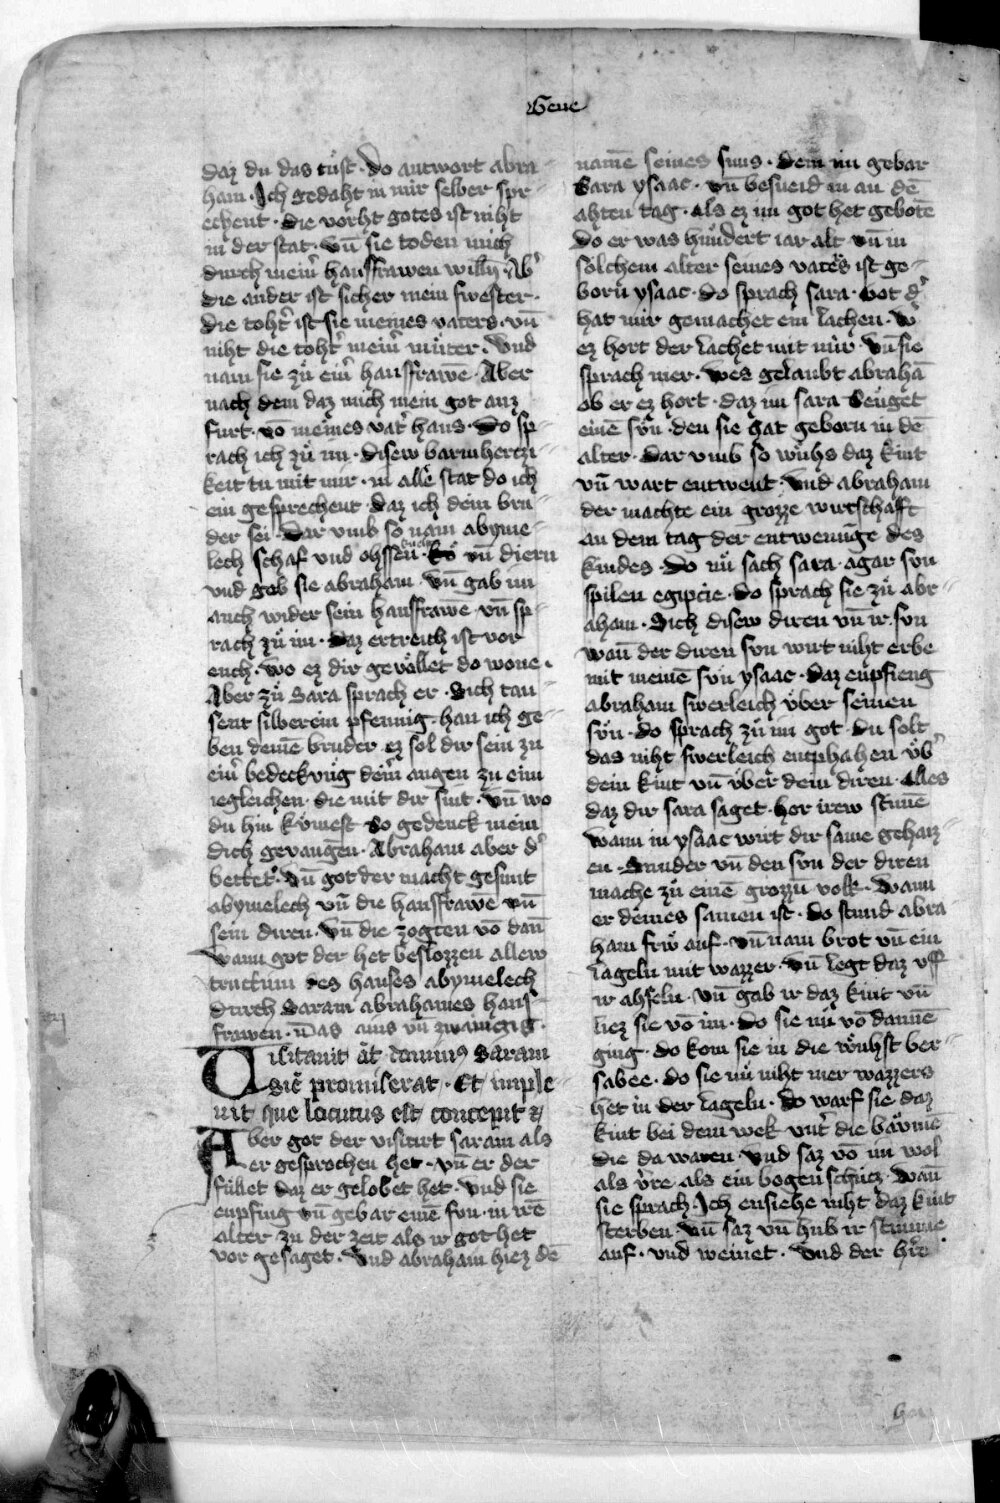 Gene
daz du das tuͤst · Do antwort abra⸗
ham · Ich gedaht in mir selber spr⸗
echent · die vorht gotes ist niht
in der stat · vn̄ sie toden mich
durch mein̾ hausfrawen willn̄ · Ab̾
die ander ist sicher mein swester ·
die toht̾ ist sie meines vaters · vn̄
niht die toht̾ mein̾ muͤter · Vnd
nam sie zuͤ ein̾ hausfrawe · Aber
nach dem daz mich mein got auz
furt · vō meines vat̾ haus · Do sp⸗
rach ich zuͤ im · disew barmhertzi⸗
keit tu mit mir · in alle stat do ich
ein gesprechent · daz ich dein bru⸗
der sei · Dar vmb so nam abyme⸗
lech schaf vnd ohssen · vn̄ diern
vnd gob sie abraham · vn̄ gab im
auch wider sein hausfrawē vn̄ sp⸗
rach zuͤ im · Daz ertreich ist vor
euch · wo ez dir gevellet do wone ·
Aber zuͤ Sara sprach er · Sich tau⸗
sent silberein pfennig · han ich ge⸗
ben deinē bruder · ez sol dir sein zu
ein̾ bedeckung dein̾ augen zu eim
iegleichen · die mit dir sint · vn̄ wo
du hin kumest So gedenck mein
dich gevangen · Abraham aber d̾
bettet · Vn̄ got der macht gesunt
abymelech vn̄ die hausfrawe vn̄
sein diren · vn̄ die zogten vō dan̄
wann got der het beslozzen allew
des hauses abymelech
durch Saram abrahames haus⸗
frawen · Das ains vn̄ zwainczig ·
Uisitauit at̄ dominꝰ Saram
sic̾ promiserat · Et imple⸗
uit que locutus est concepit ⁊
Aber got der visitirt saram als
er gesprochen het · vn̄ er der
fullet daz er gelobet het · Vnd sie
enpfing vn̄ gebar einē sun · in irē
alter zu der zeit als ir got het
vor gesaget · Vnd abraham hiez dē
namē seines suns · dem im gebar
Sara ysaac · vn̄ besneid in an dē
ahten tag · als ez im got het gebotē
do er was hundert iar alt vn̄ in
solchem alter seines vaters ist ge⸗
born ysaac · do sprach sara · Got d̾
hat mir gemachet ein lachen · W̾
ez hort der lachet mit mir · Vn̄ sie
sprach mer · Wes gelaubt abrahā
ob er ez hort · daz im sara Seuget
einē sun · den sie hat geborn in dē
alter · Dar vmb so wuhs daz kint
vn̄ wart entwent · Vnd abraham
der machte ein grozze wirtschaft
an dem tag der entwenunge des
kindes · Do nu sach sara · agar sun
spilen egipcie · do sprach sie zuͤ abr⸗
aham · Sich disew diren vn̄ ir sun
wan̄ der diren sun wirt niht erbe
mit meinē sun ysaac · daz enpfieng
abraham swerleich vber seinen
sun · do sprach zuͤ im got · du solt
das niht swerleich entphahen vb̾
dein kint vn̄ vber dein diren · Alles
daz dir sara saget · hor irew stime
wann in ysaac wirt dir same gehaiz⸗
en · Sunder vn̄ den sun der diren
mache zuͤ einē grozzn̄ volk · Wann
er deines samen ist · do stund abra⸗
ham fruͤ auf · vn̄ nam brot vn̄ ein
lageln mit wazzer · vn̄ legt daz vff
ir ahseln · vn̄ gab ir daz kint vn̄
liez sie vō im · do sie nu vō dannē
ging · do kom sie in die wuͤhst ber⸗
sabee · do sie nu niht mer wazzers
het in der lageln · Do warf sie daz
kint bei dem wek vnt̾ die baumē
die da waren · vnd saz vō im wol
als v̾re · als ein bogen schutz · wan̄
sie sprach · Ich ensiehe niht daz kint
sterben · Vn̄ saz vn̄ hub ir stimme
auf · vnd weinet · Vnd der h̾re